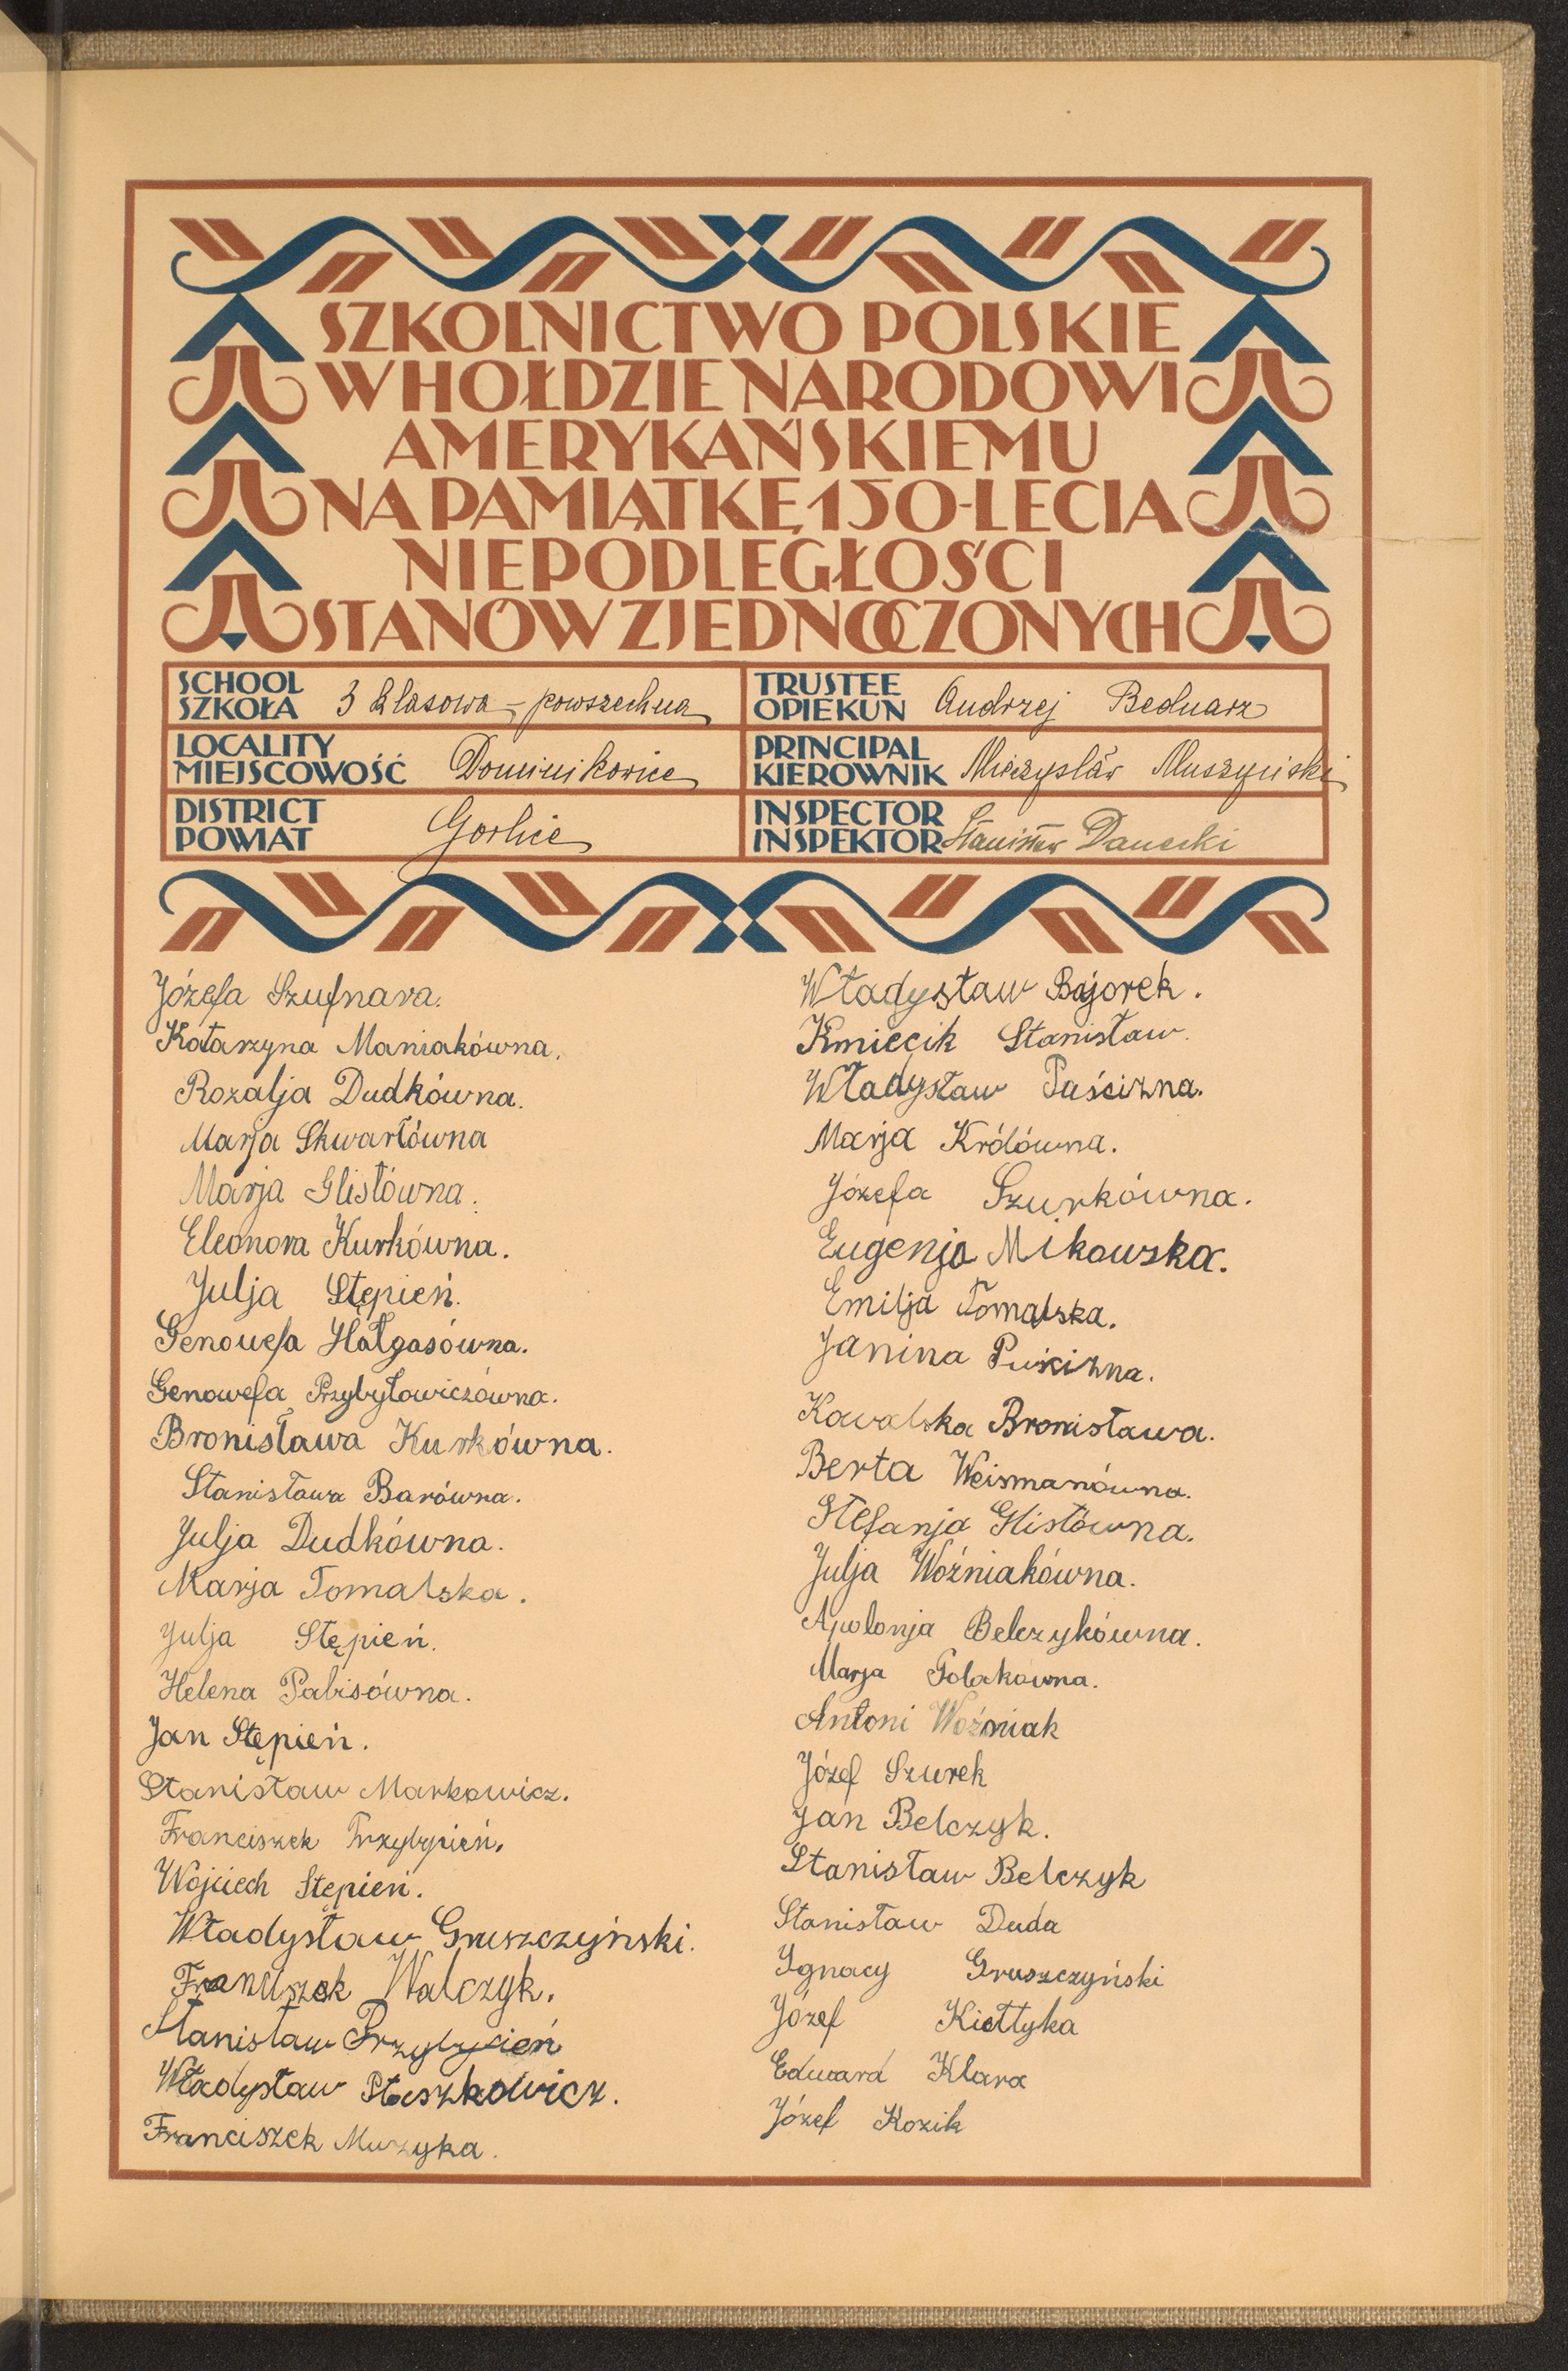 SZKOLNICTWO POLSKIE
W HOŁDZIE NARODOWI
AMERYKAŃSKIEMU
NA PAMIĄTKĘ 150-LECIA
NIEPODLEGŁOŚCI
STANÓW ZJEDNOCZONYCH
SCHOOL
SZKOŁA 3 klasowa - powszechna
LOCALITY
MIEJSCOWOŚĆ Dominikowice
DISTRICT
POWIAT Gorlice
TRUSTEE
OPIEKUN Andrzej Bednarz
PRINCIPAL
KIEROWNIK Mieczysław Muszyński
INSPECTOR
INSPEKTOR Stanisław Danecki
Józefa Szufnara.
Katarzyna Maniakówna.
Rozalja Dudkówna.
Marja Skwarłówna
Marja Glistówna.
Eleonora Kurkówna.
Julja Stępień.
Genowefa Hałgasówna.
Genowefa Przybyłowiczówna.
Bronisława Kurkówna.
Stanisława Barówna.
Julja Dudkówna.
Marja Tomalska.
Julja Stępień.
Helena Pabisówna.
Jan Stępień.
Stanisław Markowicz.
Franciszek Przybycień.
Wojciech Stępień.
Władysław Gruszczyński.
Franciszek Walczyk.
Stanisław Przybycień
Władysław Staszkowicz.
Franciszek Muzyka.
Władysław Bajorek.
Kmiecik Stanisław.
Władysław Puścizna.
Marja Królówna.
Józefa Szurkówna.
Eugenja Mikowska.
Emilja Tomalska.
Janina Puścizna.
Kowalska Bronisława.
Berta Weismanówna.
Stefanja Glistówna.
Julja Woźniakówna.
Apolonja Belczykówna.
Marja Polakówna.
Antoni Woźniak
Józef Szurek
Jan Belczyk.
Stanisław Belczyk
Stanisław Duda
Ignacy Gruszczyński
Józef Kiełtyka
Edward Klara
Józef Kozik